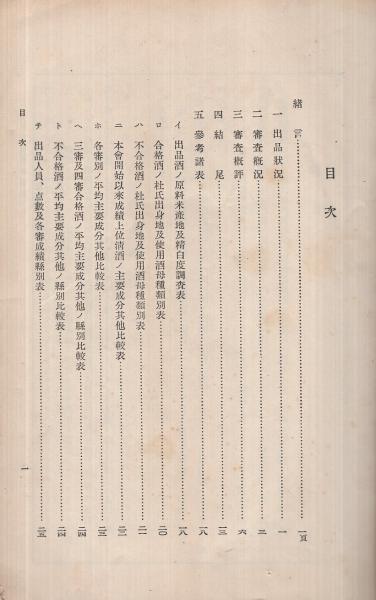 目次
緒言………一頁
一 出品狀況………一
二 審査槪況………二
三 審査槪評………六
四 結尾………一三
五 參考諸表………一八
イ 出品酒ノ原料米產地及精白度調査表………一八
ロ 合格酒ノ杜氏出身地及使用酒母種類別表………二〇
ハ 不合格酒ノ杜氏出身地及使用酒母種類別表………二一
ニ 本會開始以來成績上位淸酒ノ主要成分其他比較表………二二
ホ 各審別ノ平均主要成分其他比較表………二三
ヘ 三審及四審合格酒ノ平均主要成分其他ノ縣別比較表………二四
ト 不合格酒ノ平均主要成分其他ノ縣別比較表………二四
チ 出品人員、点數及各審成績縣別表………二五
目次
一